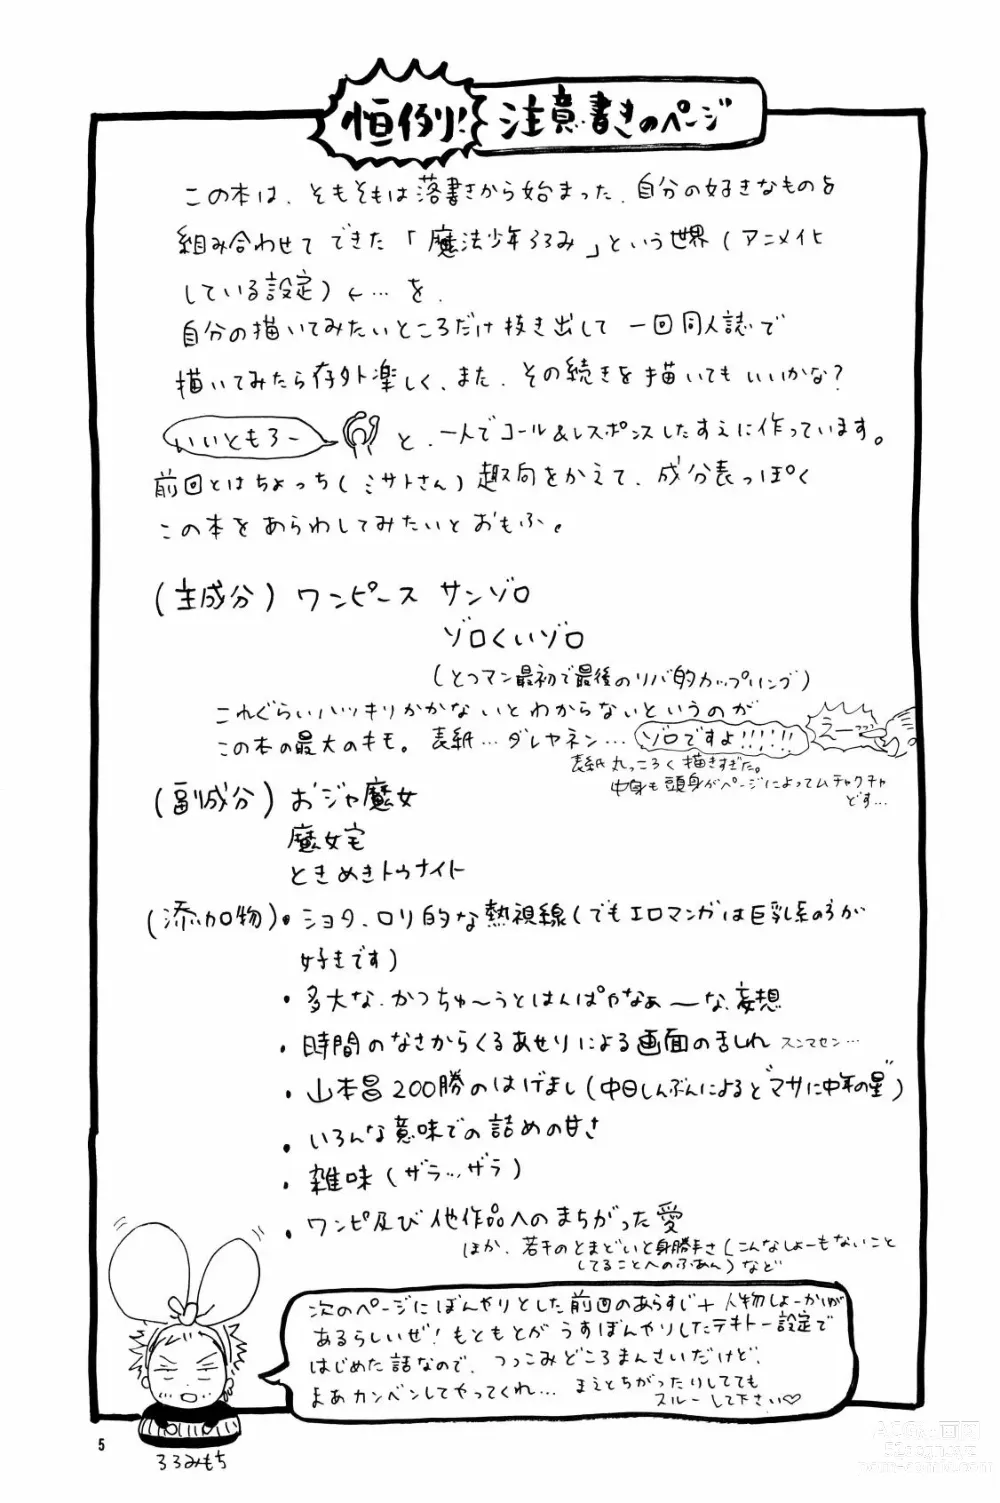 恒例!
注意書きのページ
この本は、そもそもは落書きから始まった、自分の好きなものを
組み合わせてできた「魔法少年ろろみ」という世界(アニメ化
している設定)←…を、
自分の描いてみたいところだけ抜き出して一回同人誌で
描いてみたら存外楽しく、また、その続きを描いてもいいかな?
いいともろー と、一人でコール&レスポンスしたすえに作っています。
前回とはちょっち(ミサトさん)趣向をかえて、成分表っぽく
この本をあらわしてみたいとおもふ。
(主成分)ワンピース サンゾロ
ゾロくいゾロ
(とつマン最初で最後のリバ的カップリング)
これぐらいハッキリかかないとわからないというのが
この本の最大のキモ。表紙…ダレヤネン… ゾロですよ!!!!!! えーっっ
表紙丸っころく描きすぎた。
中身も頭身がページによってムチャクチャ
どす…
(副成分)おジャ魔女
魔女宅
ときめきトゥナイト
(添加物)・ショタ、ロリ的な熱視線(でもエロマンガは巨乳系のうが
好きです)
・多大な、かつちゅ〜うとはんぱやなぁ〜な妄想
・時間のなさからくるあせりによる画面の乱れ スンマセン…
・山本昌200勝のはげまし(中日しんぶんによると"マサに中年の星")
・いろんな意味での詰めの甘さ
・雑味(ザラ…ザラ)
・ワンピ及び他作品へのまちがった愛
ほか、若干のとまどいと身勝手さ(こんなしょーもないこと
してることへのふあん)など
次のページにぼんやりとした前回のあらすじ+人物しょーかいが
あるらしいぜ!もともとが うすぼんやりしたテキトー設定で
はじめた話なので、つっこみどころまんさいだけど、
まあカンベンしてやってくれ… まえとちがったりしてても
スルーして下さい♡
ろろみもち
5